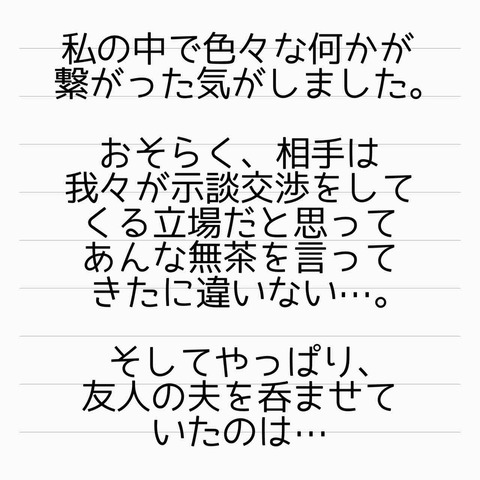 私の中で色々な何かが
繋がった気がしました。
おそらく、相手は
我々が示談交渉をして
くる立場だと思って
あんな無茶を言って
きたに違いない…。
そしてやっぱり、
友人の夫を呑ませて
いたのは…